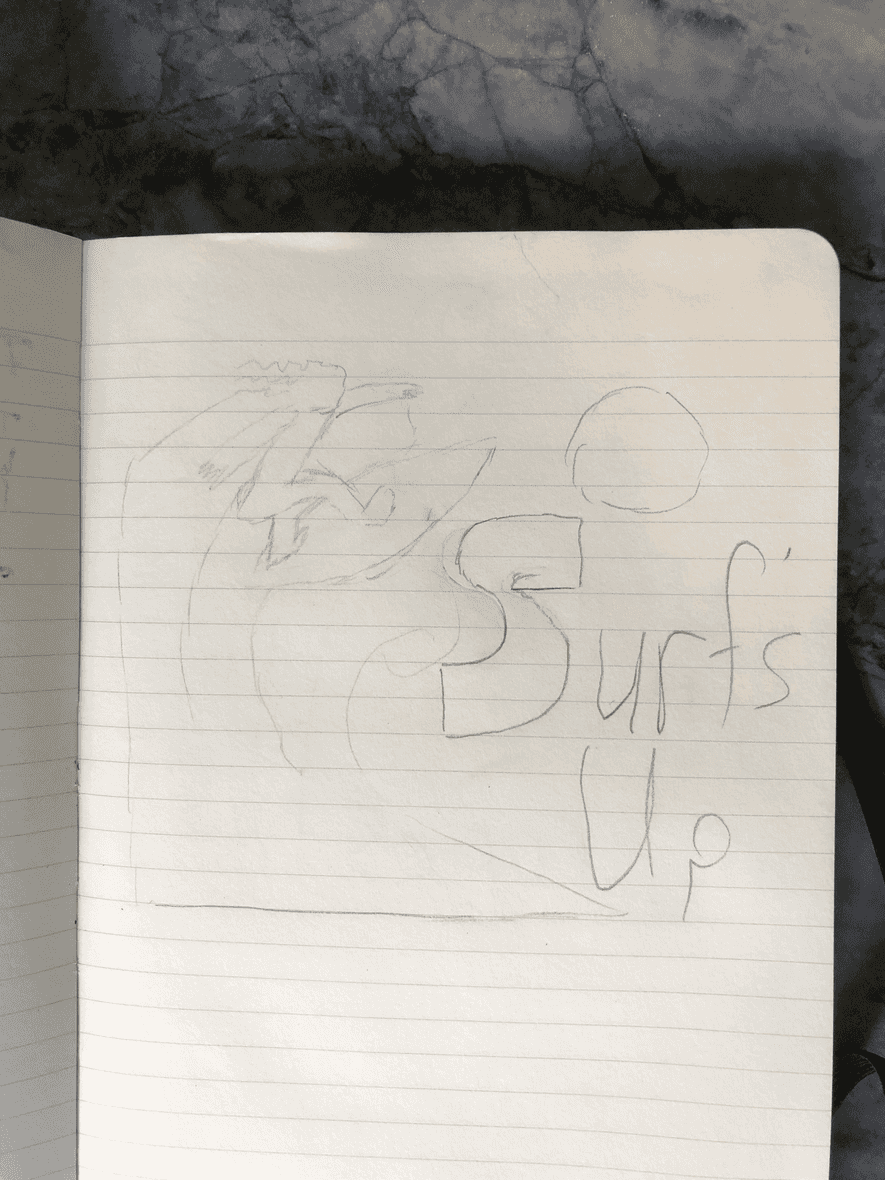 Surf's
Up